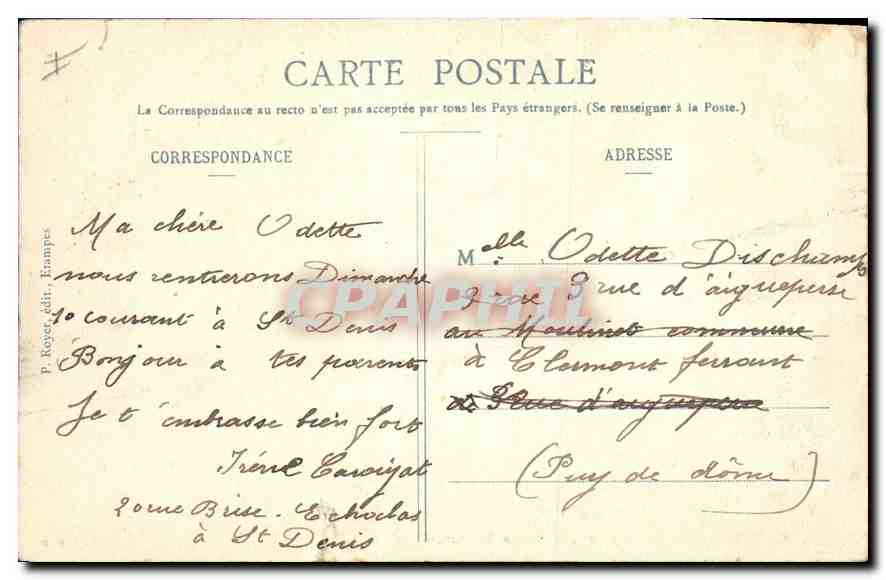 CARTE POSTALE
La Correspondance au recto n'est pas acceptée par tous les Pays étrangers. (Se renseigner à la Poste.)
CORRESPONDANCE
Ma chére Odette
nous rentrerons Dimanche
10 courant à St Denis
Bonjour à tes parents
Je t'embrasse bien fort
Irène
20 rue Brise-Echalas
à St Denis
ADRESSE
Melle Odette Dischamps
3 rue d'aigueperse
au Moulinet commune
à Clermont ferrant
3 Rue d'aigueperse
(Puy de dôme)
P. Royer, édit., Etampes
CPAPHIL